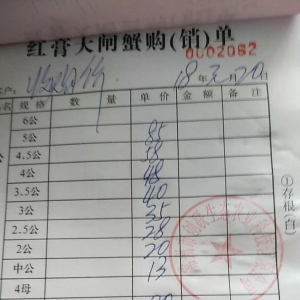 红膏大闸蟹购(销)单
0002082
收购价 18年 月20日
名 规格 数量 单价 金额 备注
6公
5公 85
4.5公 58
4公 48
3.5公 40
3公 35
2.5公 28
2公 20
中公 13
4母
①存根(白)